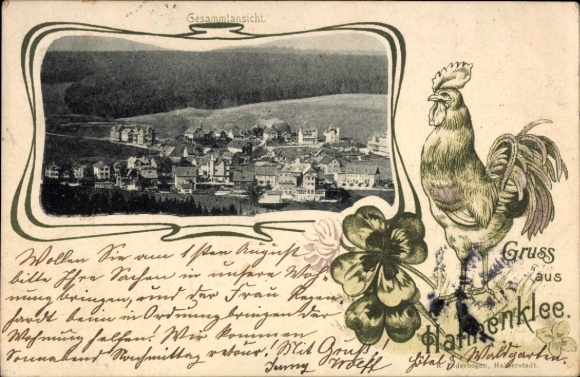 Gesammtansicht.
Gruss
aus
Hahnenklee.
Wollen Sie am 1sten August
bitte Ihre Sachen in unsere Woh-
nung bringen, und der Frau Regen-
hardt beim in Ordnung bringen der
Wohnung helfen! Wir kommen
Sonnabend Nachmittag retour! Mit Gruß!
Wolff
Hôtel z. Waldgarten.
R. Lederbogen, Halberstadt.